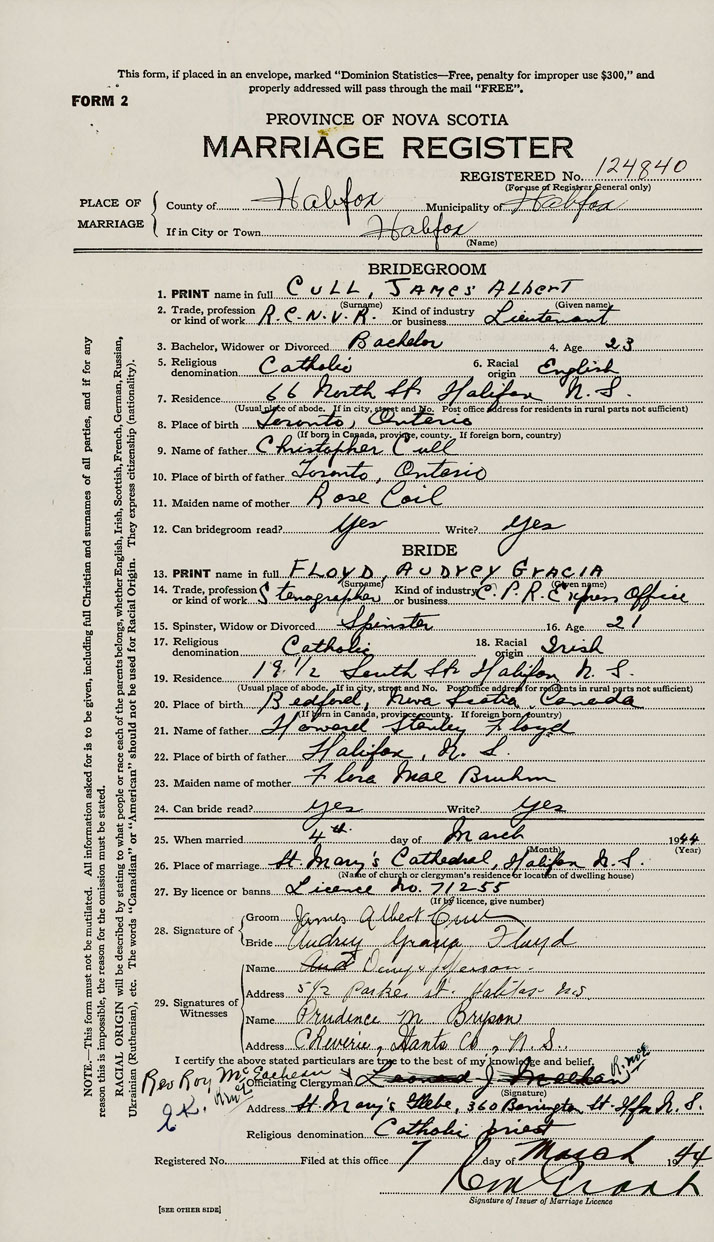 This form, if placed in an envelope, marked "Dominion Statistics—Free, penalty for improper use $300," and
properly addressed will pass through the mail "FREE".
FORM 2
PROVINCE OF NOVA SCOTIA
MARRIAGE REGISTER
REGISTERED No. 124840
(For use of Registrar General only)
PLACE OF MARRIAGE
County of Halifax Municipality of Halifax
If in City or Town Halifax
(Name)
BRIDEGROOM
1. PRINT name in full CULL, JAMES ALBERT
(Surname) (Given name)
2. Trade, profession or kind of work R.C.N.V.R. Kind of industry or business Lieutenant
3. Bachelor, Widower or Divorced Bachelor 4. Age 23
5. Religious denomination Catholic 6. Racial origin English
7. Residence 66 North St. Halifax N.S.
(Usual place of abode. If in city, street and No. Post office address for residents in rural parts not sufficient)
8. Place of birth Toronto, Ontario
(If born in Canada, province, county. If foreign born, country)
9. Name of father Christopher Cull
10. Place of birth of father Toronto, Ontario
11. Maiden name of mother Rose Coil
12. Can bridegroom read? Yes Write? Yes
BRIDE
13. PRINT name in full FLOYD, AUDREY GRACIA
(Surname) (Given name)
14. Trade, profession or kind of work Stenographer Kind of industry or business C.P.R. Express Office
15. Spinster, Widow or Divorced Spinster 16. Age 21
17. Religious denomination Catholic 18. Racial origin Irish
19. Residence 19 1/2 South St. Halifax N.S.
(Usual place of abode. If in city, street and No. Post office address for residents in rural parts not sufficient)
20. Place of birth Bedford, Nova Scotia, Canada
(If born in Canada, province, county. If foreign born, country)
21. Name of father Howard Stanley Floyd
22. Place of birth of father Halifax, N.S.
23. Maiden name of mother Flora Mae Bruhm
24. Can bride read? yes Write? yes
25. When married 4th day of March 1944
(Month) (Year)
26. Place of marriage St. Mary's Cathedral, Halifax N.S.
(Name of church or clergyman's residence or location of dwelling house)
27. By licence or banns Licence No. 71255
(If by licence, give number)
28. Signature of
Groom James Albert Cull
Bride Audrey Gracia Floyd
29. Signatures of Witnesses
Name
Address 542 Parker St. Halifax N.S.
Name Prudence M Bryson
Address Cheverie, Hants Co., N.S.
I certify the above stated particulars are true to the best of my knowledge and belief,
Rev Roy McEachern
Officiating Clergyman Leonard J. Meehan
(Signature)
Address St. Mary's Glebe, 360 Barrington St. Hfx N.S.
Religious denomination Catholic priest
Registered No. Filed at this office 7 day of March 1944
Signature of Issuer of Marriage Licence
[SEE OTHER SIDE]
NOTE.—This form must not be mutilated. All information asked for is to be given, including full Christian and surnames of all parties, and if for any
reason this is impossible, the reason for the omission must be stated.
RACIAL ORIGIN will be described by stating to what people or race each of the parents belongs, whether English, Irish, Scottish, French, German, Russian,
Ukrainian (Ruthenian), etc. The words "Canadian" or "American" should not be used for Racial Origin. They express citizenship (nationality).